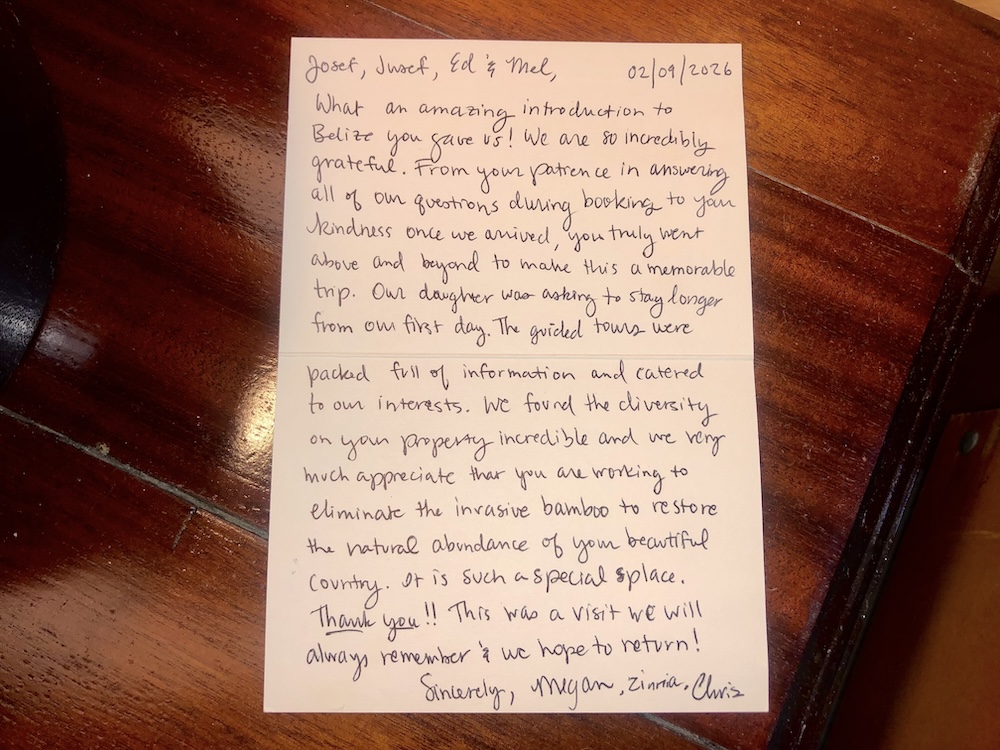 Josef, Jusef, Ed & Mel, 02/09/2026
What an amazing introduction to
Belize you gave us! We are so incredibly
grateful. From your patience in answering
all of our questions during booking to your
kindness once we arrived, you truly went
above and beyond to make this a memorable
trip. Our daughter was asking to stay longer
from our first day. The guided tours were
packed full of information and catered
to our interests. We found the diversity
on your property incredible and we very
much appreciate that you are working to
eliminate the invasive bamboo to restore
the natural abundance of your beautiful
country. It is such a special splace.
Thank you!! This was a visit we will
always remember & we hope to return!
Sincerely, Megan, Zinnia, Chris